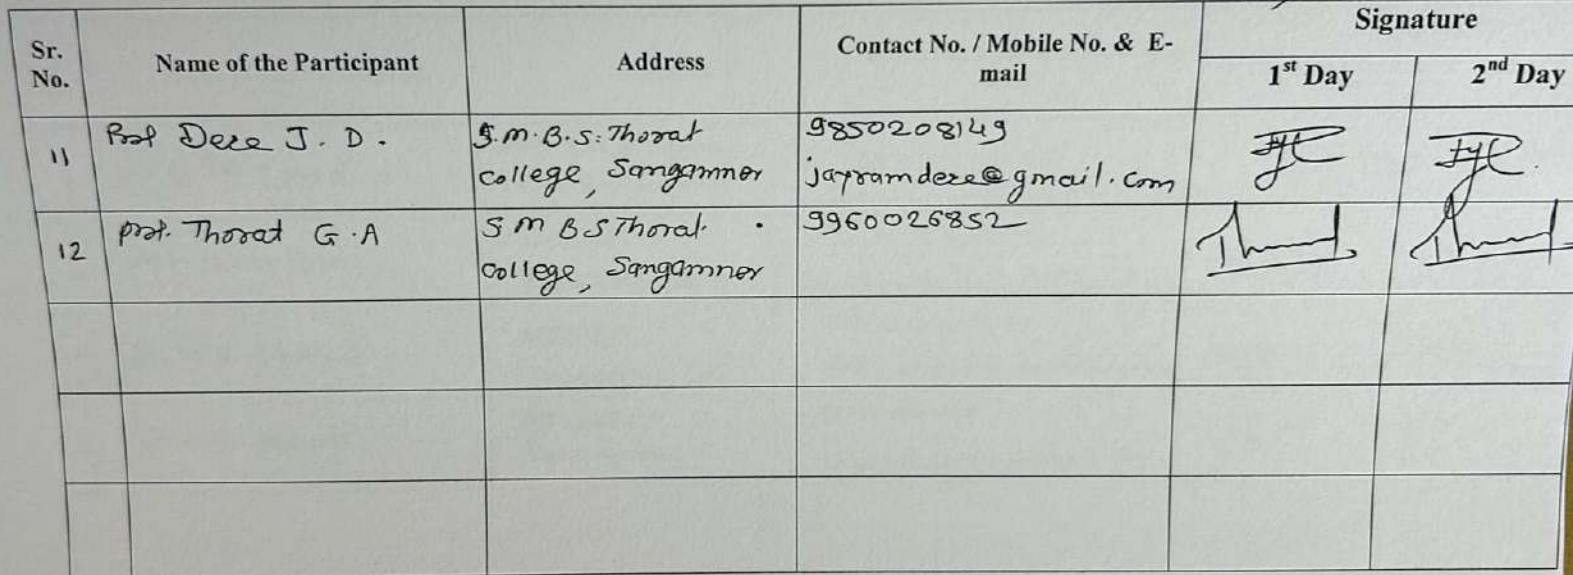 Sr. No.
Name of the Participant
Address
Contact No. / Mobile No. & E-
mail
Signature
1st Day
2nd Day
11
Prof Dere J. D.
S.M.B.S. Thorat
college, Sangamner
9850208149
jayramdere@gmail.com
12
prof. Thorat G.A
S M B S Thorat
college, Sangamner
9960026852